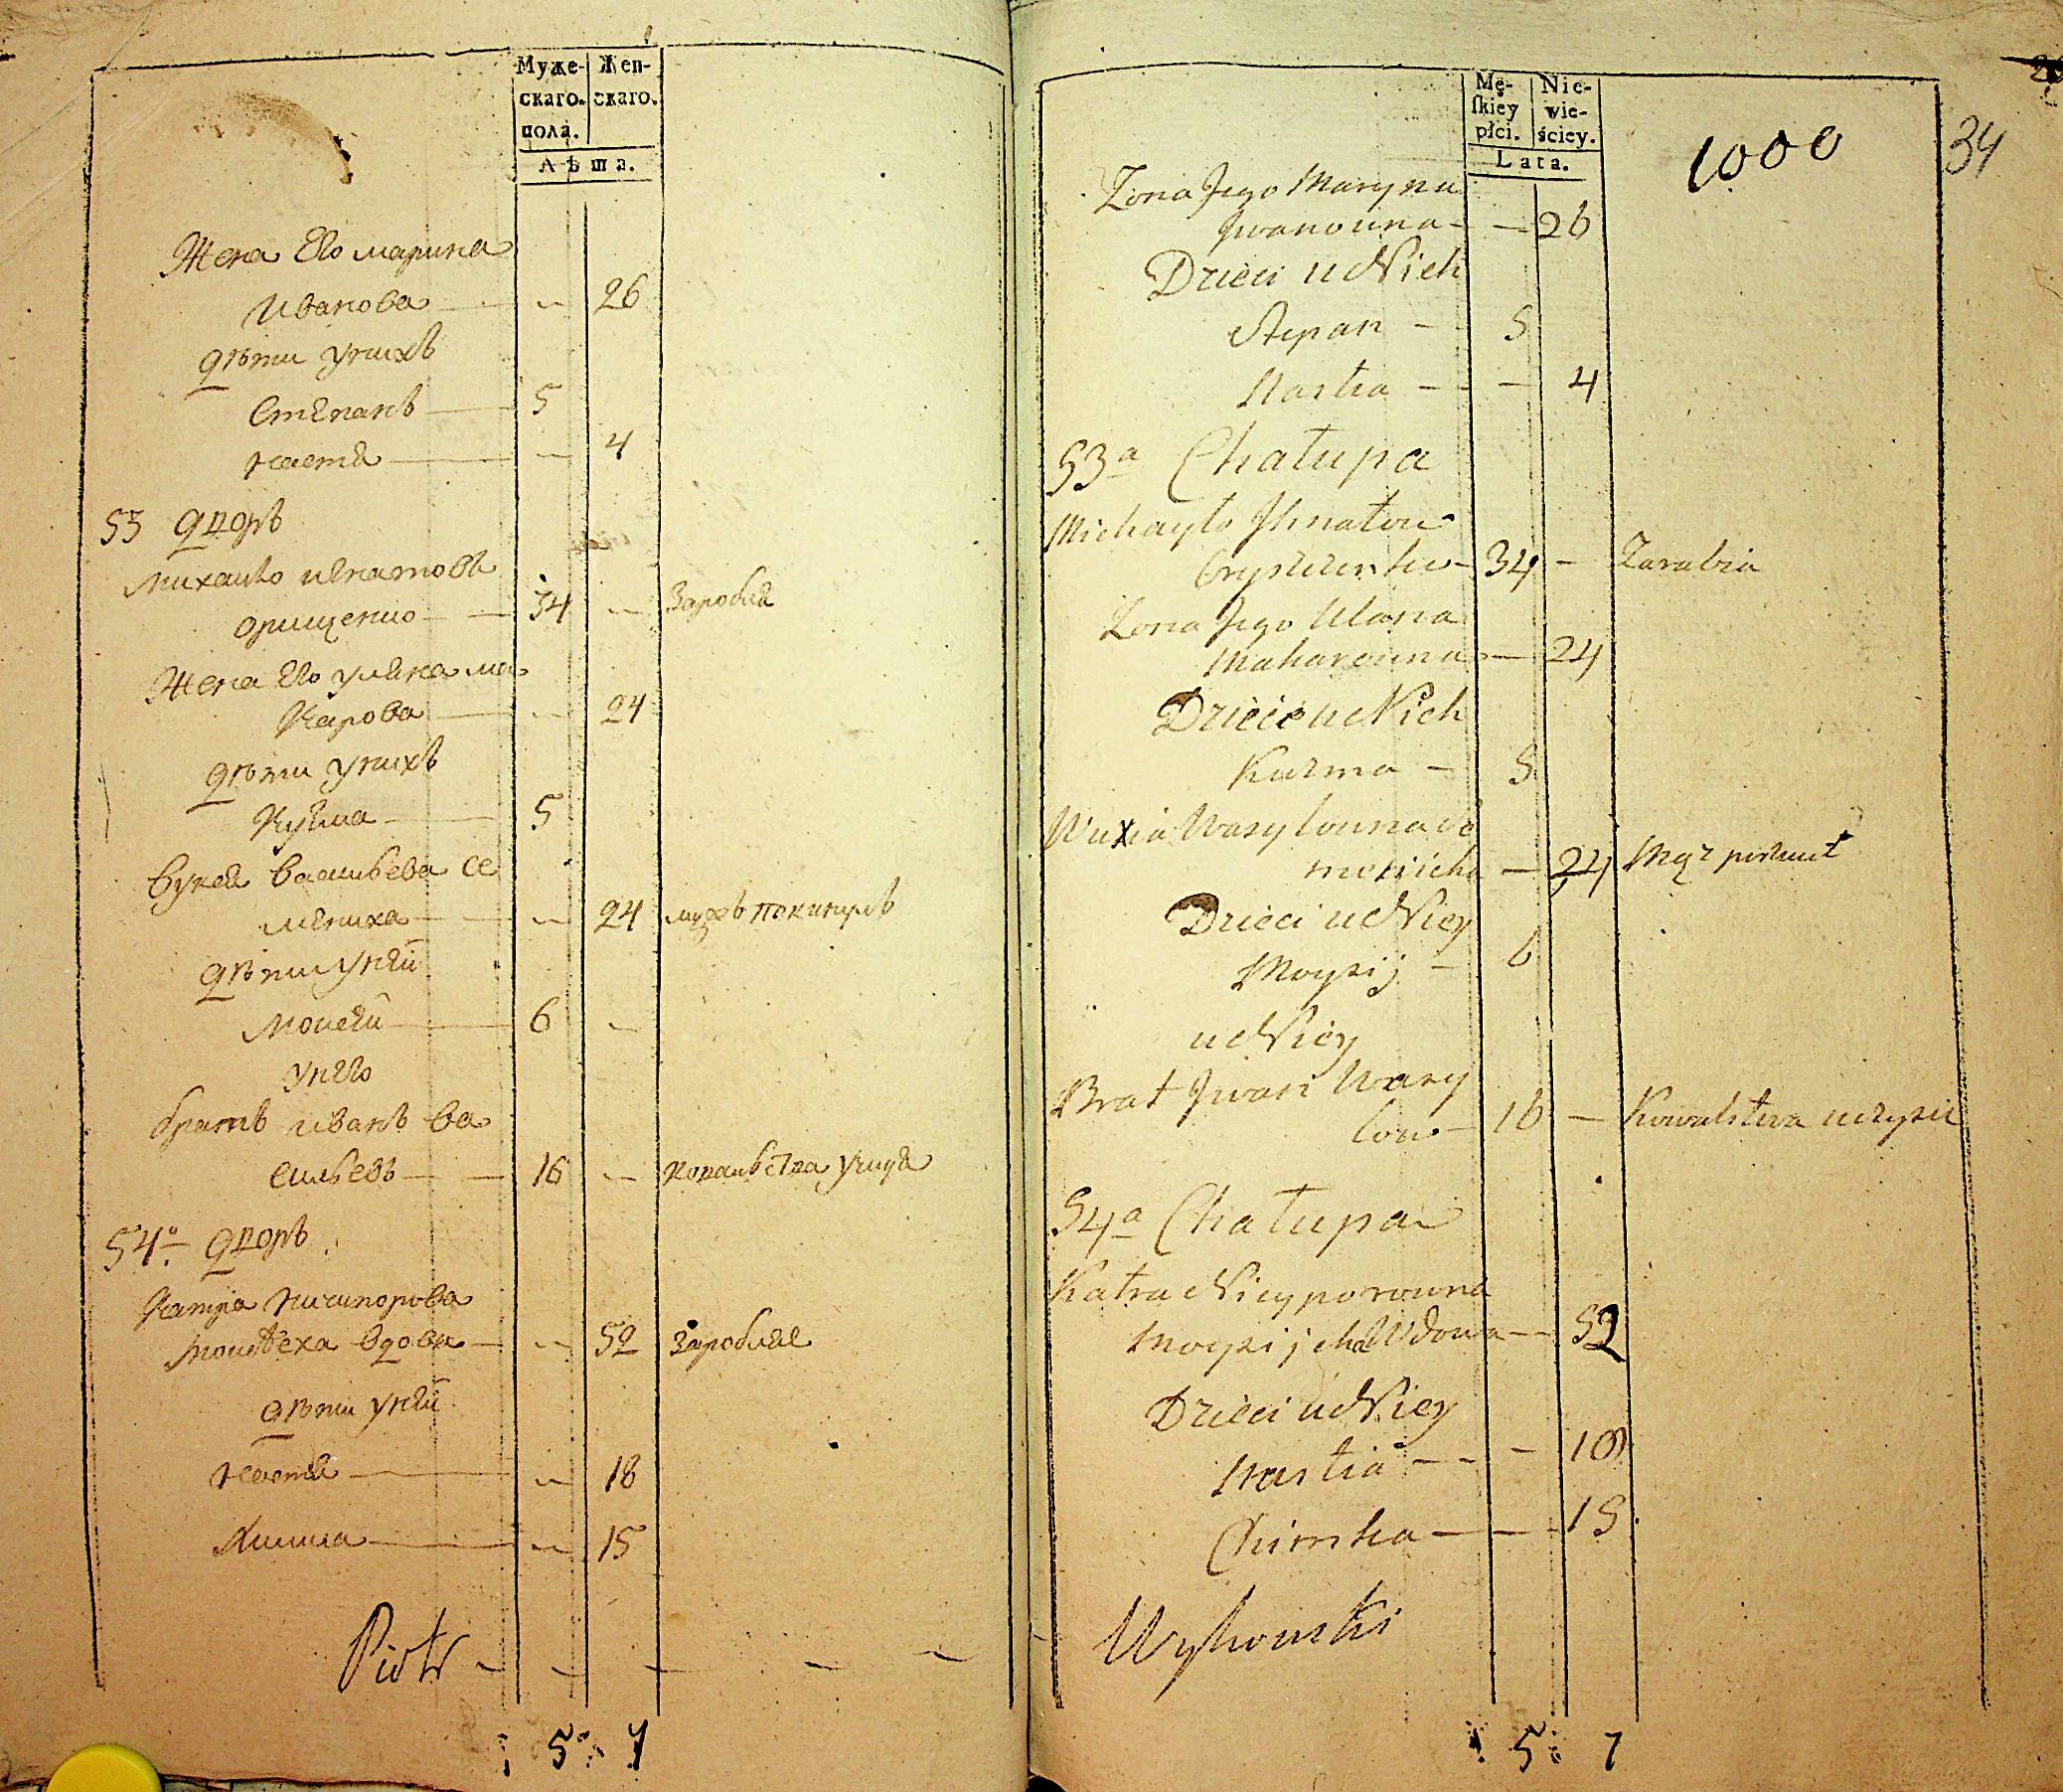 Муже-
скаго.
пола.
Жен-
скаго.
Лѣта.
Жена Его марина
Иванова — 26
дѣти унихъ
Степанъ — 5
настя — 4
53 дворъ
михаило игнатовъ
орищенко — 34 — Заробля
Жена Его уляна ма
Карова — 24
дѣти унихъ
Кузма — 5
Вукея Васильева се
мениха — 24 мужъ покинулъ
дѣти унеи
Моисеи — 6 —
унего
братъ иванъ ва
сильевъ — 16 — ковальства учиця
54о дворъ
Катра ничипорова
моисѣеха вдова — 52 Заробляе
дѣти унеи
настя — 18
Химка — 15
Piotr
5 7
1000
34
Mę-
ſkiéy
płci.
Nie-
wie-
ściey.
Lata.
Żona Jego Maryna
Iwanowna — 26
Dzieci u Nich
Stepan — 5
Nastia — 4
53a Chałupa
Michayło Ihnatow
Oryszczenko — 34 — Zarabia
Żona Jego Ulana
Makarowna — 24
Dzieci u Nich
Kuzma — 5
Wasylowna Se
menicha — 24 Mąż porzucił
Dzieci u Niey
Moysij — 6
u Niey
Brat Iwan Wasy
low — 16 — Kowalstwa uczysie
54a Chałupa
Katra Niczyporowna
Moysijcha Wdowa — 52
Dzieci u Niey
Nastia — 18
Chimka — 15
Wyhowski
5 7